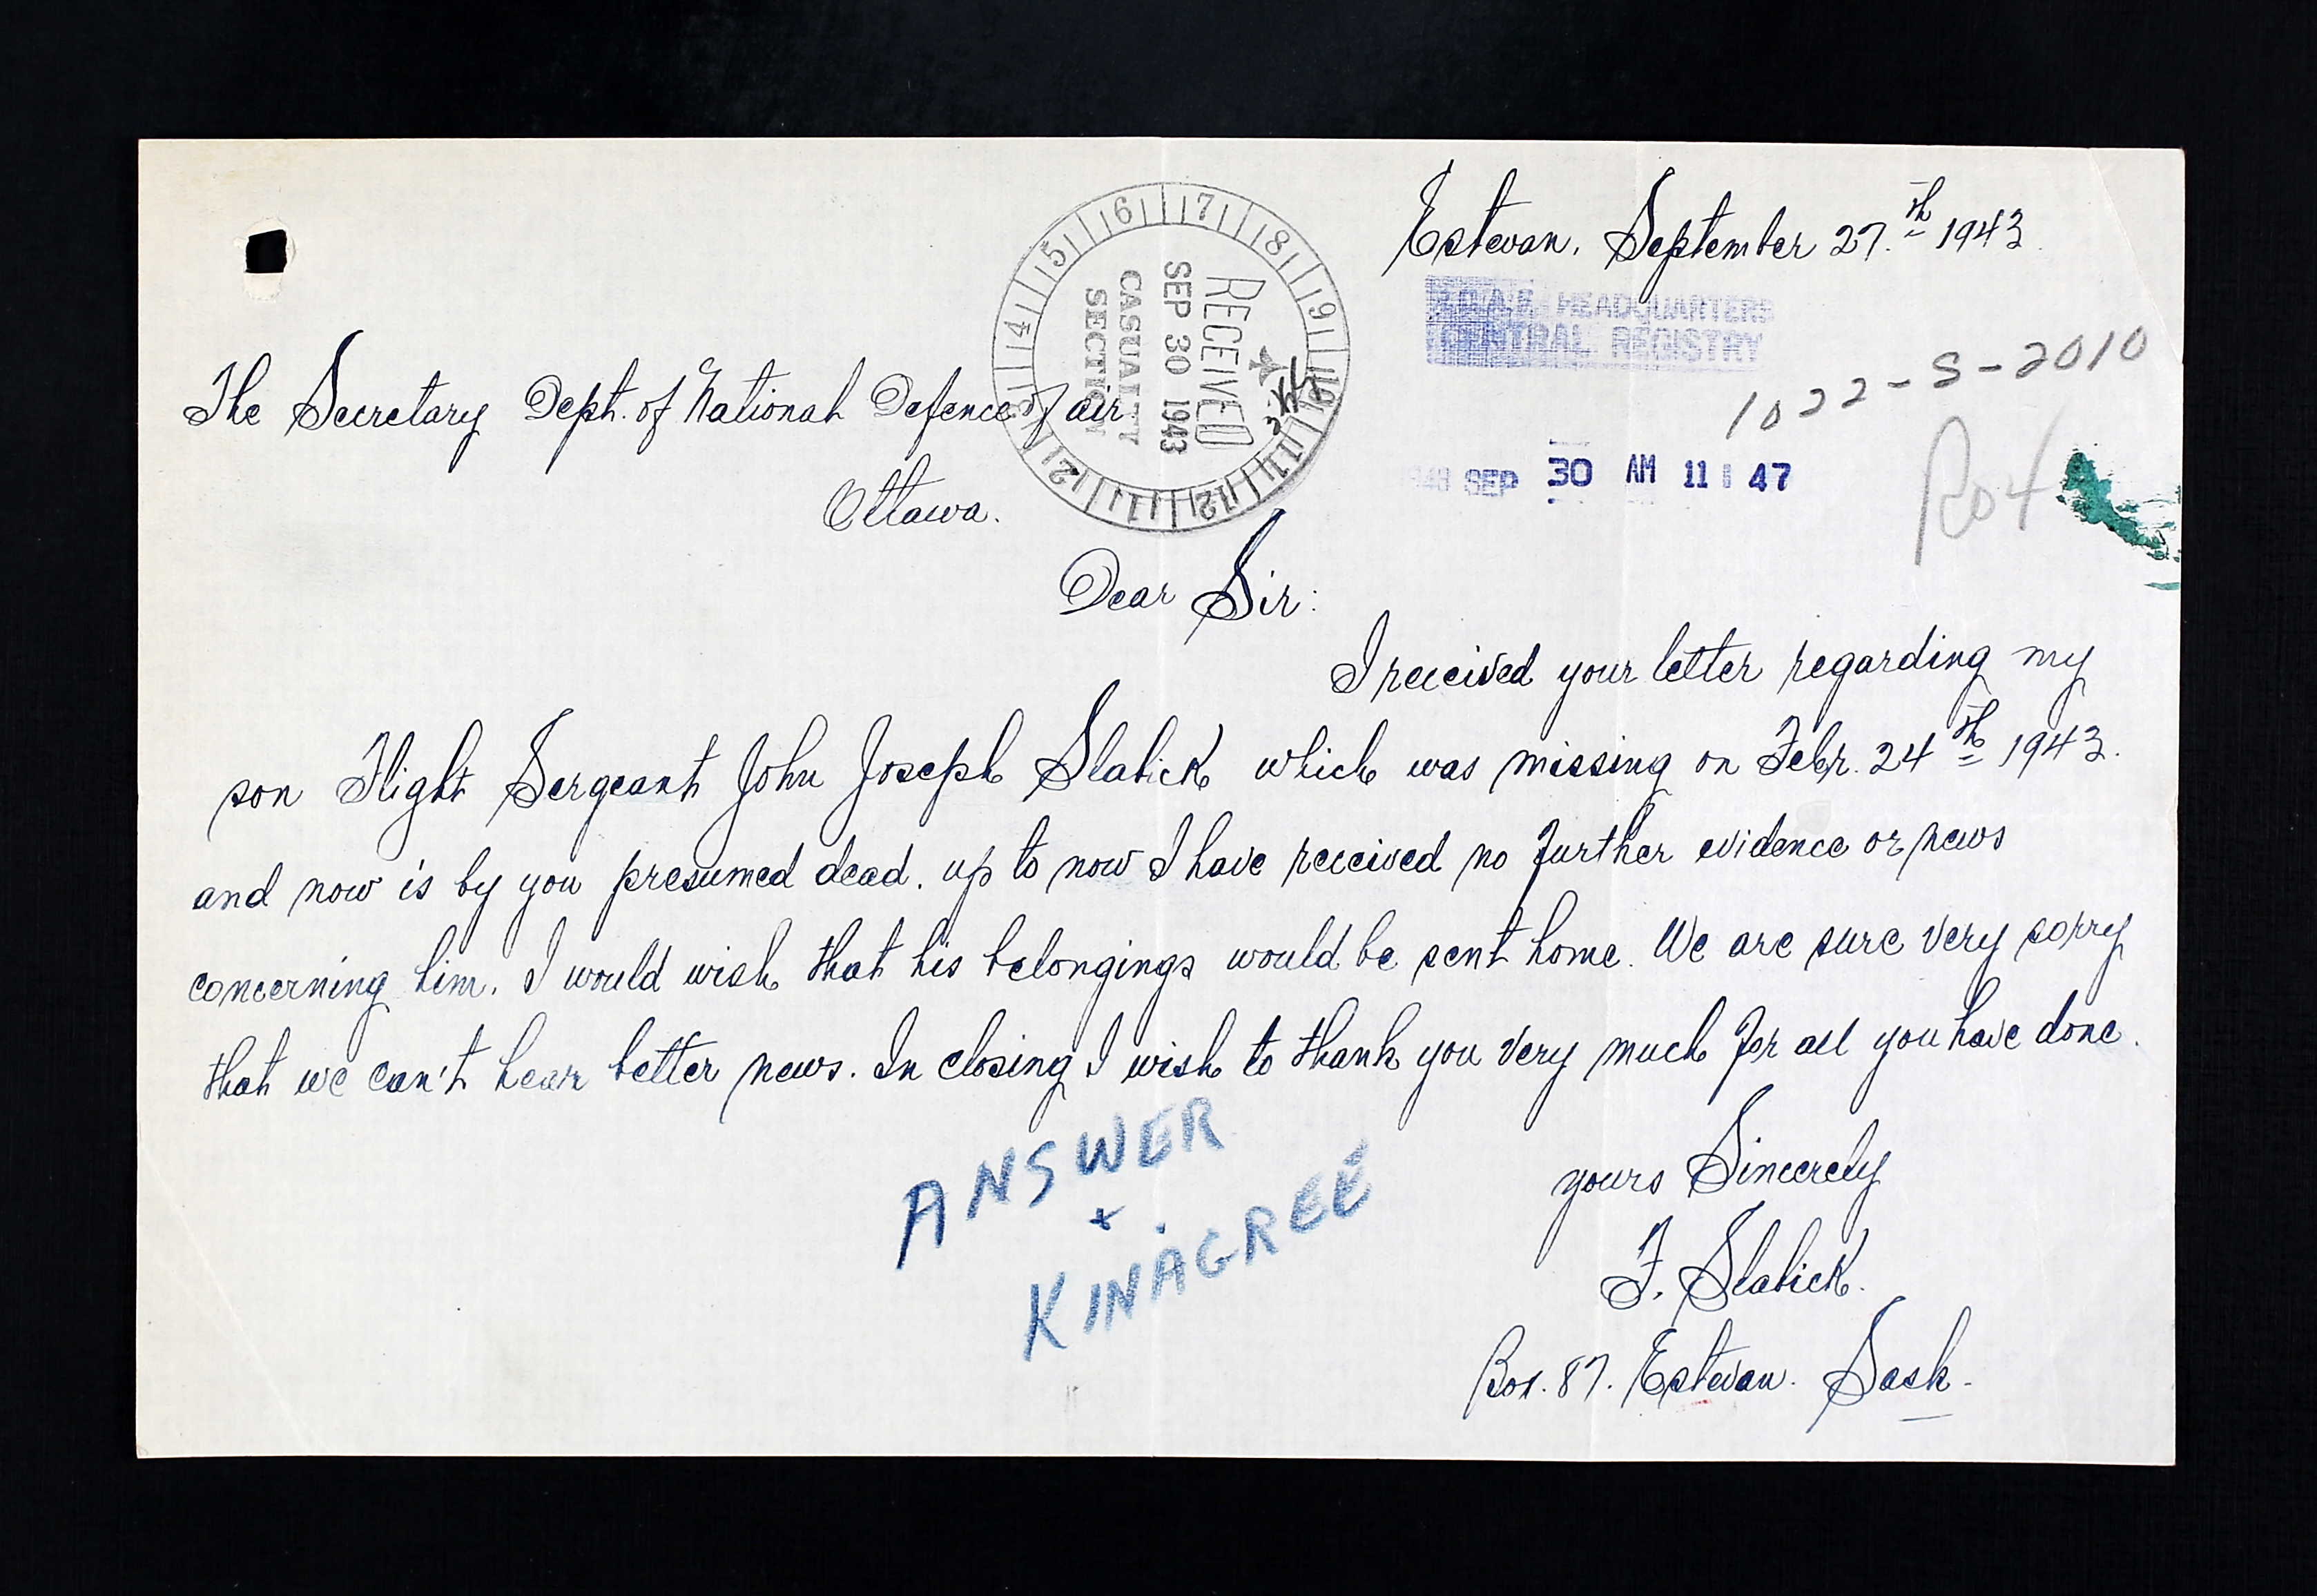 Estevan. September 27.th 1943.
R.C.A.F. HEADQUARTERS
CENTRAL REGISTRY
1022-S-2010
6 7 8 9 10 11 12 1 2 3 4 5
RECEIVED
SEP 30 1943
CASUALTY
SECTION
SEP 30 AM 11 47
The Secretary Dept. of National Defence of air
Ottawa.
Dear Sir:
I received your letter regarding my
son Flight Sergeant John Joseph Slabick which was missing on Febr. 24th 1943.
and now is by you presumed dead. up to now I have received no further evidence or news
concerning him. I would wish that his belongings would be sent home. We are sure very sorry
that we can't hear better news. In closing I wish to thank you very much for all you have done.
ANSWER
+
KINAGREE
yours Sincerely
F. Slabick.
Box. 87. Estevan. Sask.